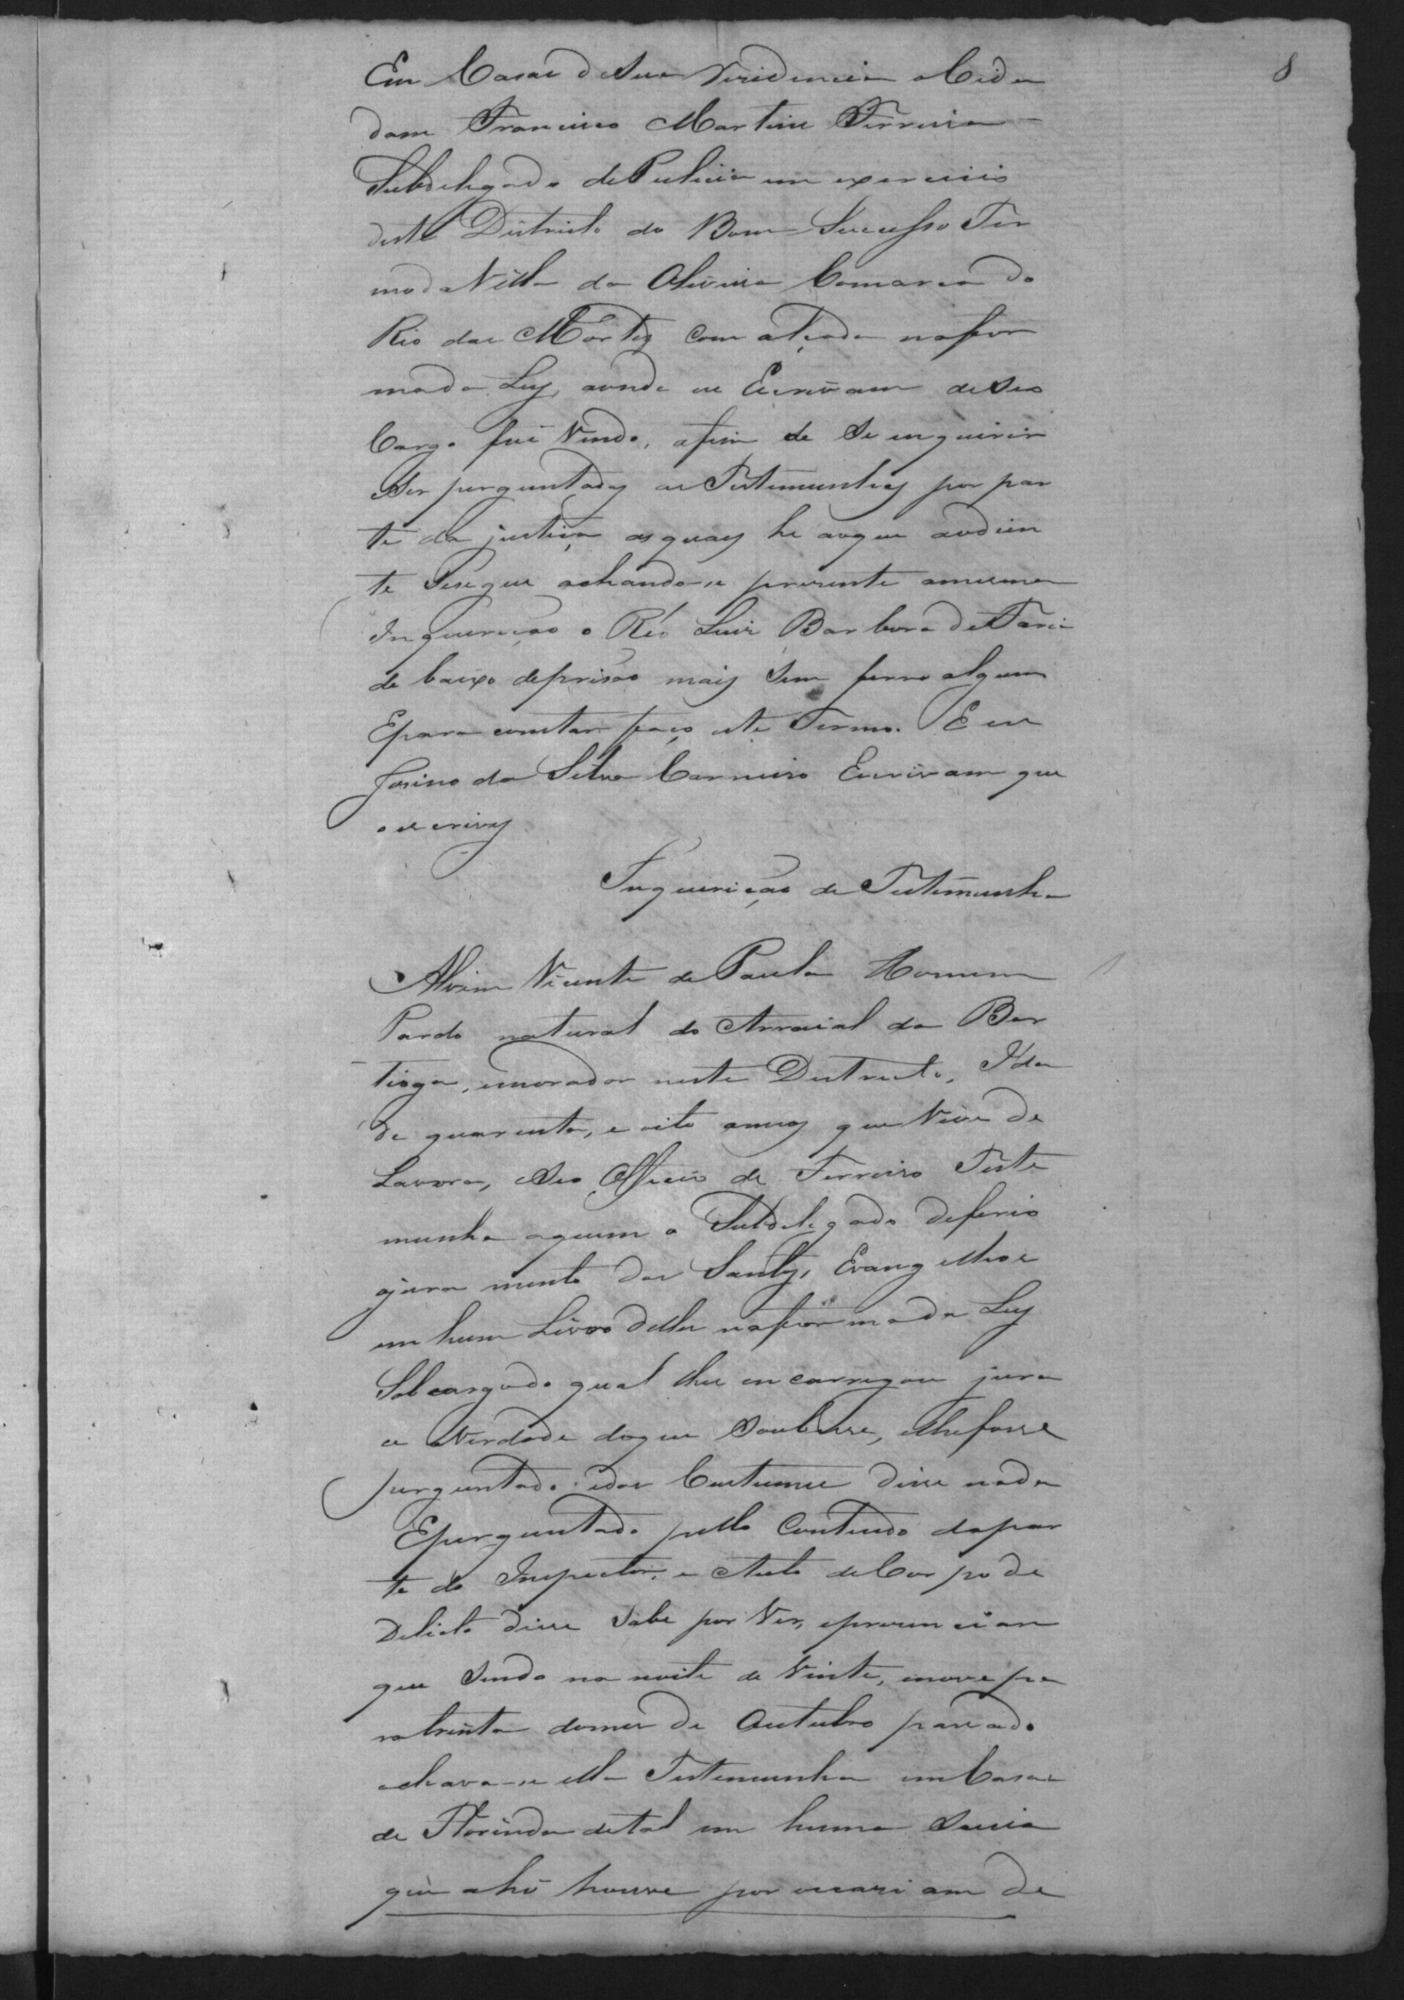 8
Em Casas de Sua Residencia o Cida
dam Francisco Martins Ferreira
Subdelegado de Pulicia em exercicio
deste Districto do Bom Sucesso Ter
mo da Villa da Oliveira Comarca do
Rio das Mortes com alçada na for
ma da Ley, aonde eu Escrivam de seo
Cargo fui Vindo, afim de se inquirir
e Ser perguntadas as Testemunhas por par
te da justiça as quaes he aoque adian
te Sesegue achando-se prezente a mesma
Inquirição o Réo Luiz Barboza de Faria
de baixo de prisão mais Sem ferro algum
E para constar faço este Termo. E eu
Josino da Silva Carneiro Escrivam que
o escrivy
Inquirição de Testemunha
Alvim Vicente de Paula Homem
Pardo natural do Arraial da Ber
tioga, emorador neste Destrito, Ida
de quarenta, e oito annos que Vive de
Lavora, e Seo Officio de Ferreiro Teste
munha aquem o Subdelegado deferio
ojura mento dos Santos Evangelhos
em hum Livro delles na forma da Ley
Sob cargo do qual lhe encarregou jura
se a Verdade do que Soubesse, e lhe fosse
perguntado e dos Custumes disse nada
E perguntado pello Contiudo da par
te do Inspector, e Auto de Corpo de
Delicto disse Sabe por Ver, e prezenciar
que Sendo na noite de Vinte, e nove pa
ra trinta do mes de Outubro passado
achava-se elle Testemunha em Casas
de Florinda de tal em huma Sucia
que ahi houve por occasiam de